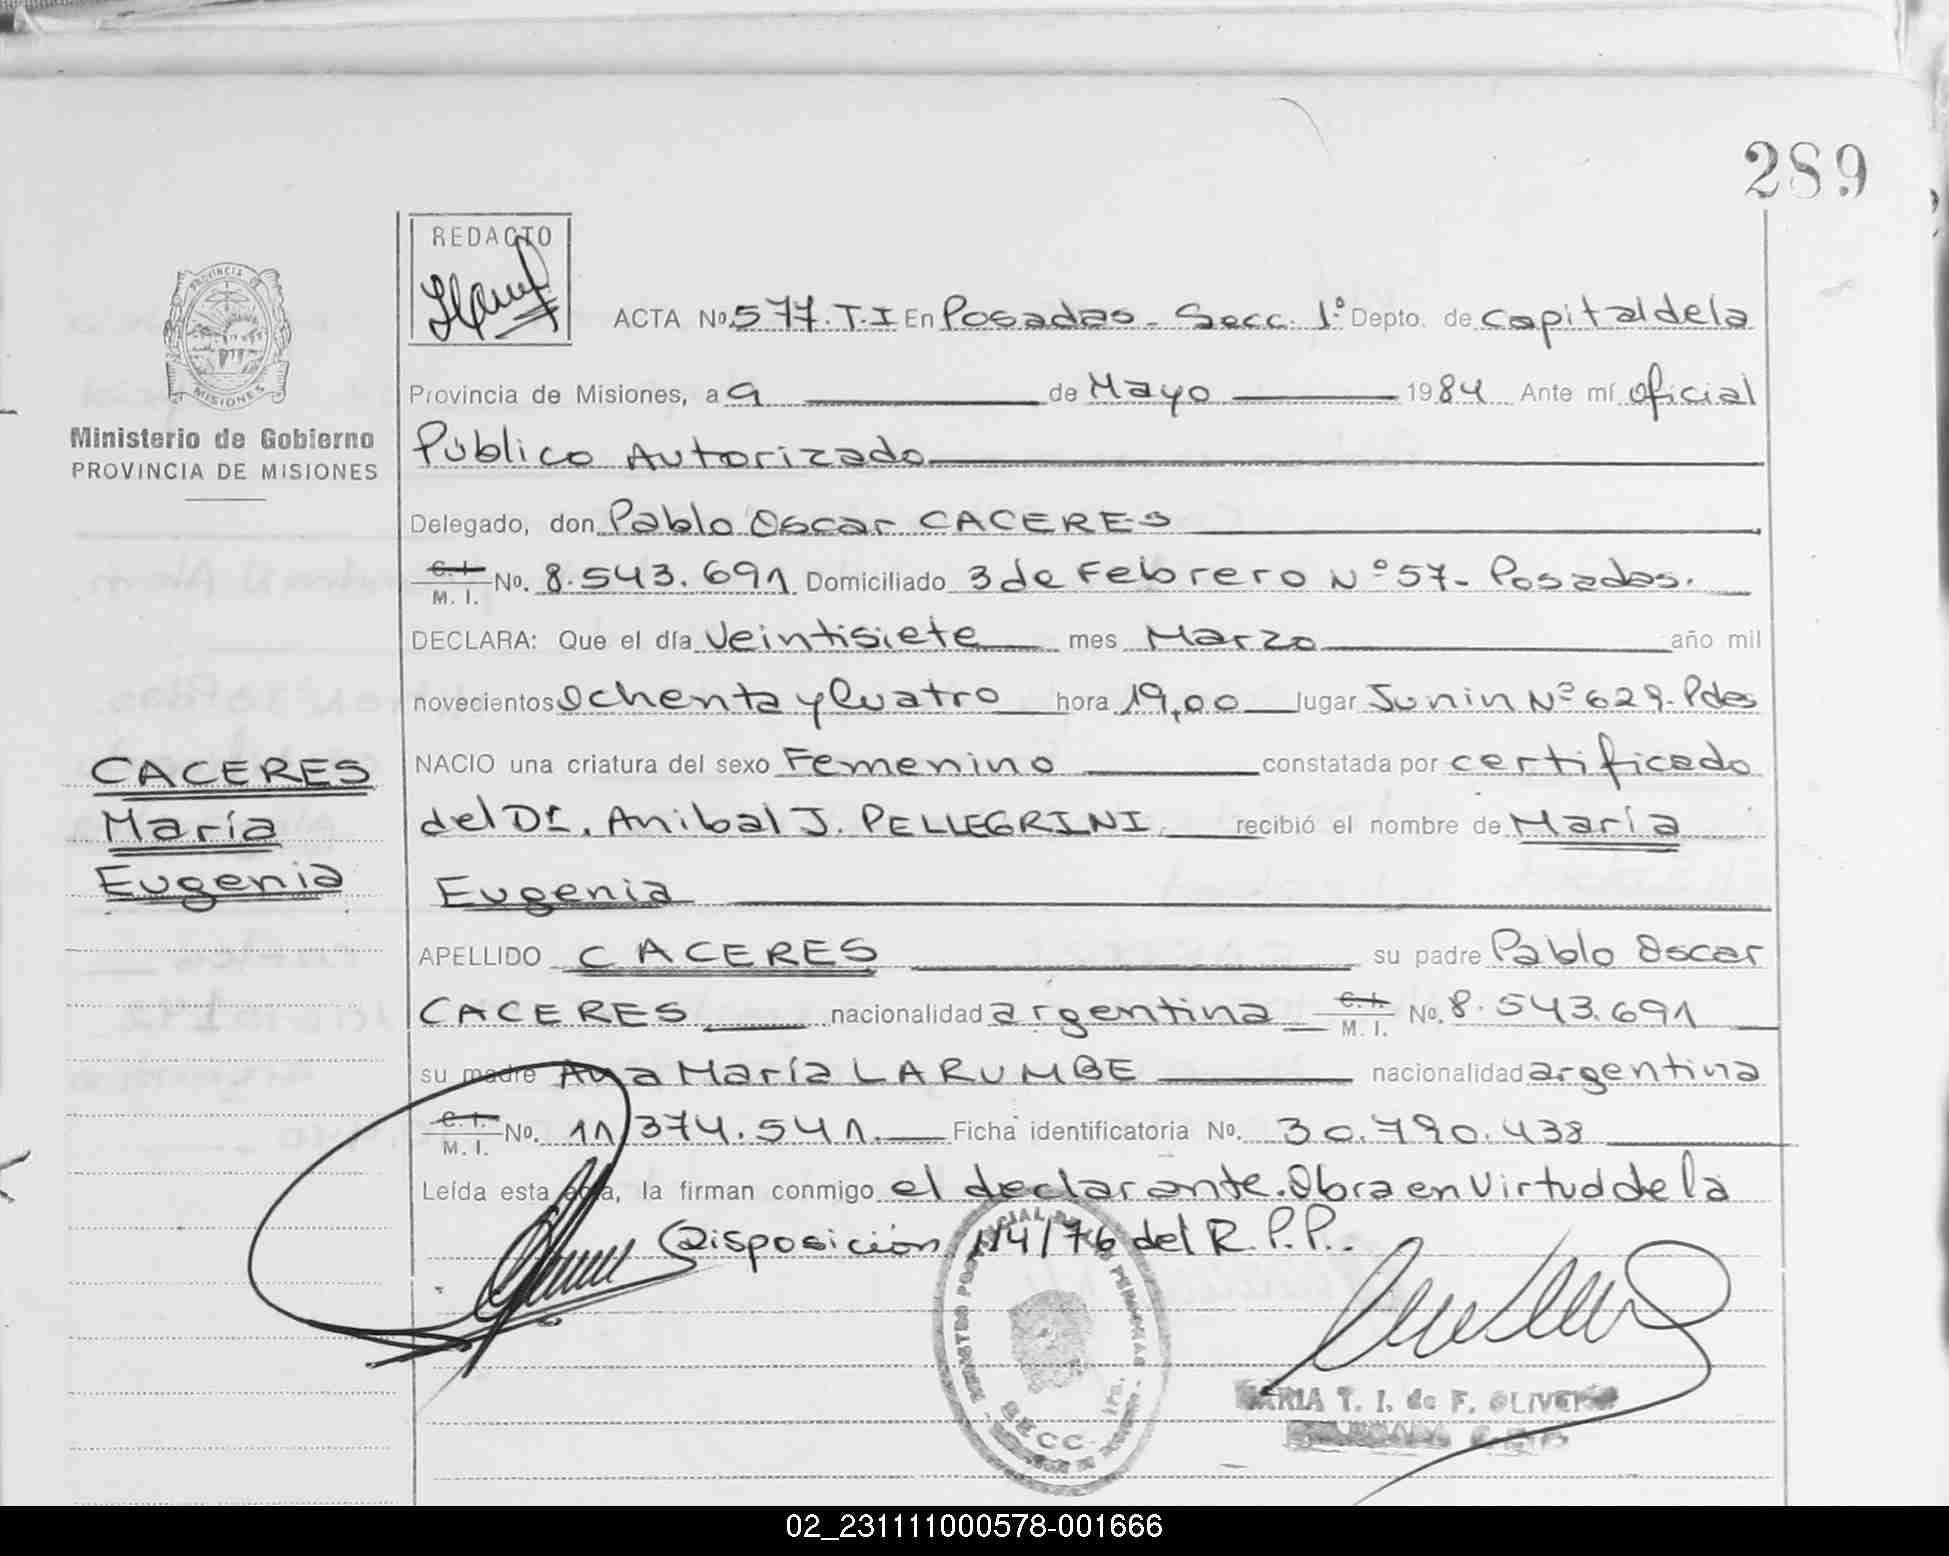 289
REDACTO
ACTA No. 577.T.I En Posadas - Secc. 1° Depto. de Capital de la
PROVINCIA DE
MISIONES
Provincia de Misiones, a 9 de Mayo 1984 Ante mí oficial
Ministerio de Gobierno
PROVINCIA DE MISIONES
Público Autorizado
Delegado, don Pablo Oscar CACERES
C. I. M. I. No. 8.543.691 Domiciliado 3 de Febrero N° 57 - Posadas.
DECLARA: Que el día Veintisiete mes Marzo año mil
novecientos Ochenta y Cuatro hora 19,00 lugar Junin N° 629 - Pdas
NACIO una criatura del sexo Femenino constatada por certificado
CACERES
María
Eugenia
del Dr. Anibal J. PELLEGRINI recibió el nombre de María
Eugenia
APELLIDO CACERES su padre Pablo Oscar
CACERES nacionalidad argentina C. I. M. I. No. 8.543.691
su madre Ana María LARUMBE nacionalidad argentina
C. I. M. I. No. 11.374.541. Ficha identificatoria No. 30.790.438
Leída esta acta, la firman conmigo el declarante. Obra en Virtud de la
Disposición 114/76 del R.P.P.
SECC.
MARIA T. I. de F. OLIVEIRA
02_231111000578-001666